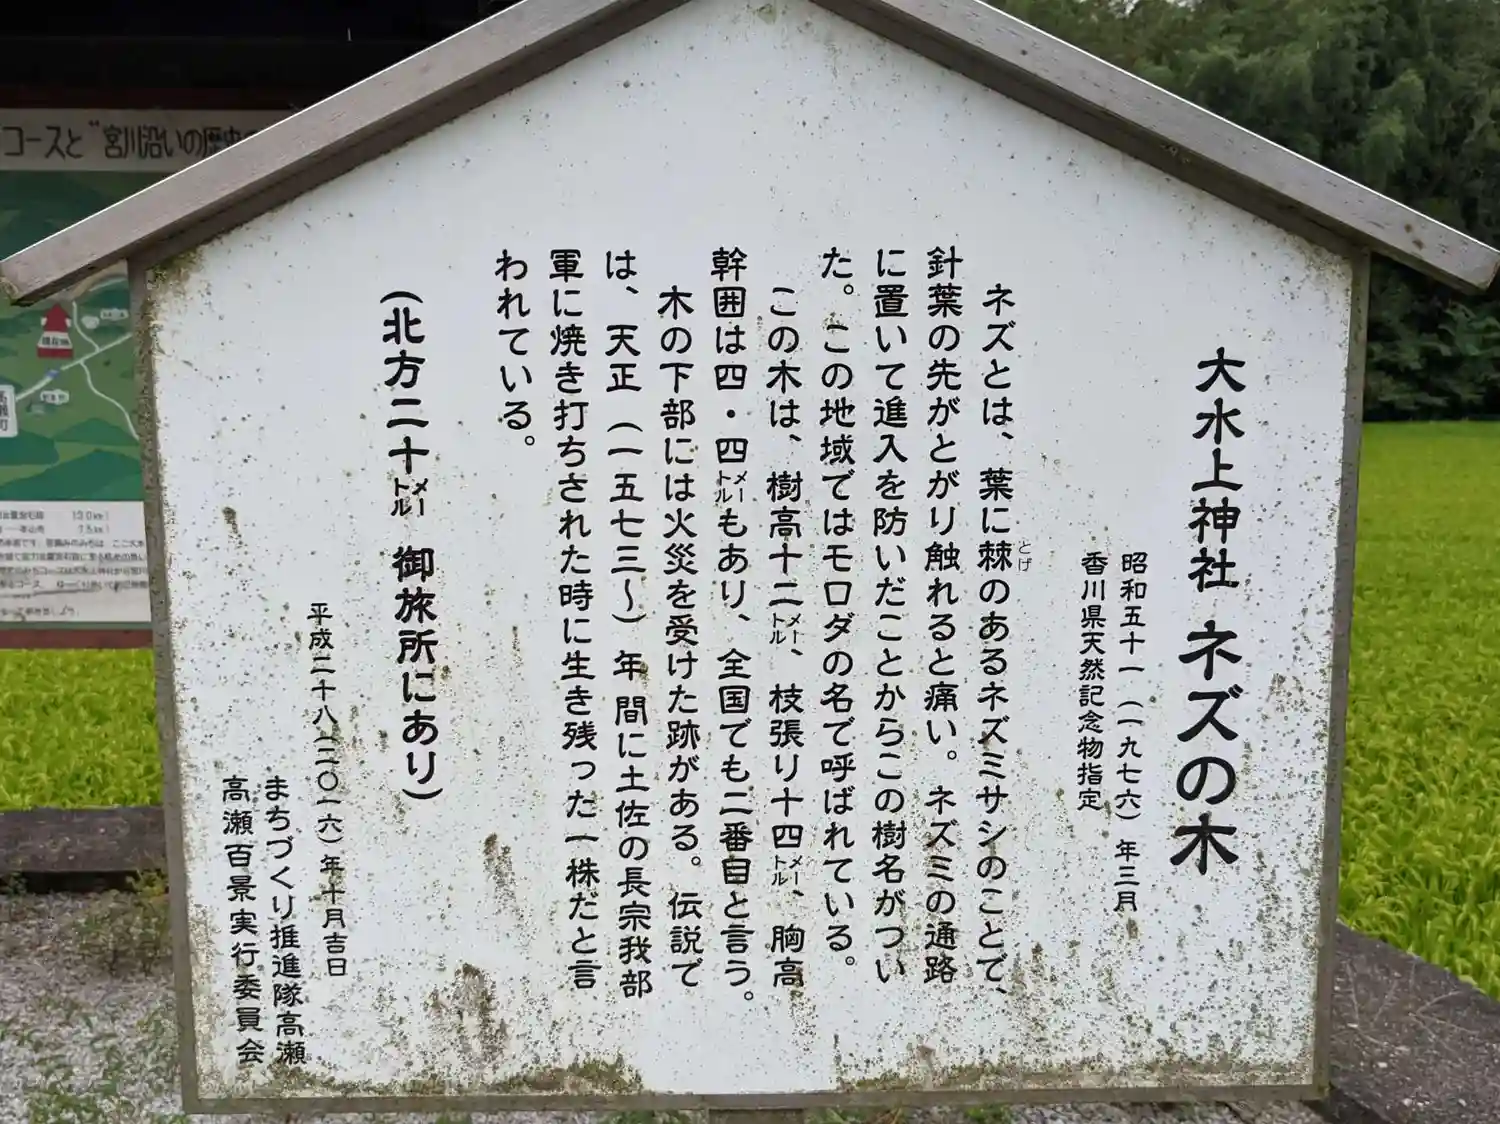 大水上神社 ネズの木
昭和五十一（一九七六）年三月
香川県天然記念物指定
ネズとは、葉に棘のあるネズミサシのことで、
とげ
針葉の先がとがり触れると痛い。ネズミの通路
に置いて進入を防いだことからこの樹名がつい
た。この地域ではモロダの名で呼ばれている。
この木は、樹高十二メートル、枝張り十四メートル、胸高
幹囲は四・四メートルもあり、全国でも二番目と言う。
木の下部には火災を受けた跡がある。伝説で
は、天正（一五七三〜）年間に土佐の長宗我部
軍に焼き打ちされた時に生き残った一株だと言
われている。
（北方二十メートル 御旅所にあり）
平成二十八（二〇一六）年十月吉日
まちづくり推進隊高瀬
高瀬百景実行委員会
コースと"宮川沿いの歴史
現在地